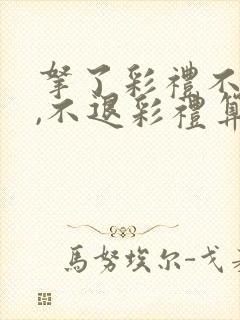 拏了彩禮不
,不退彩禮算
馬努埃尔-戈